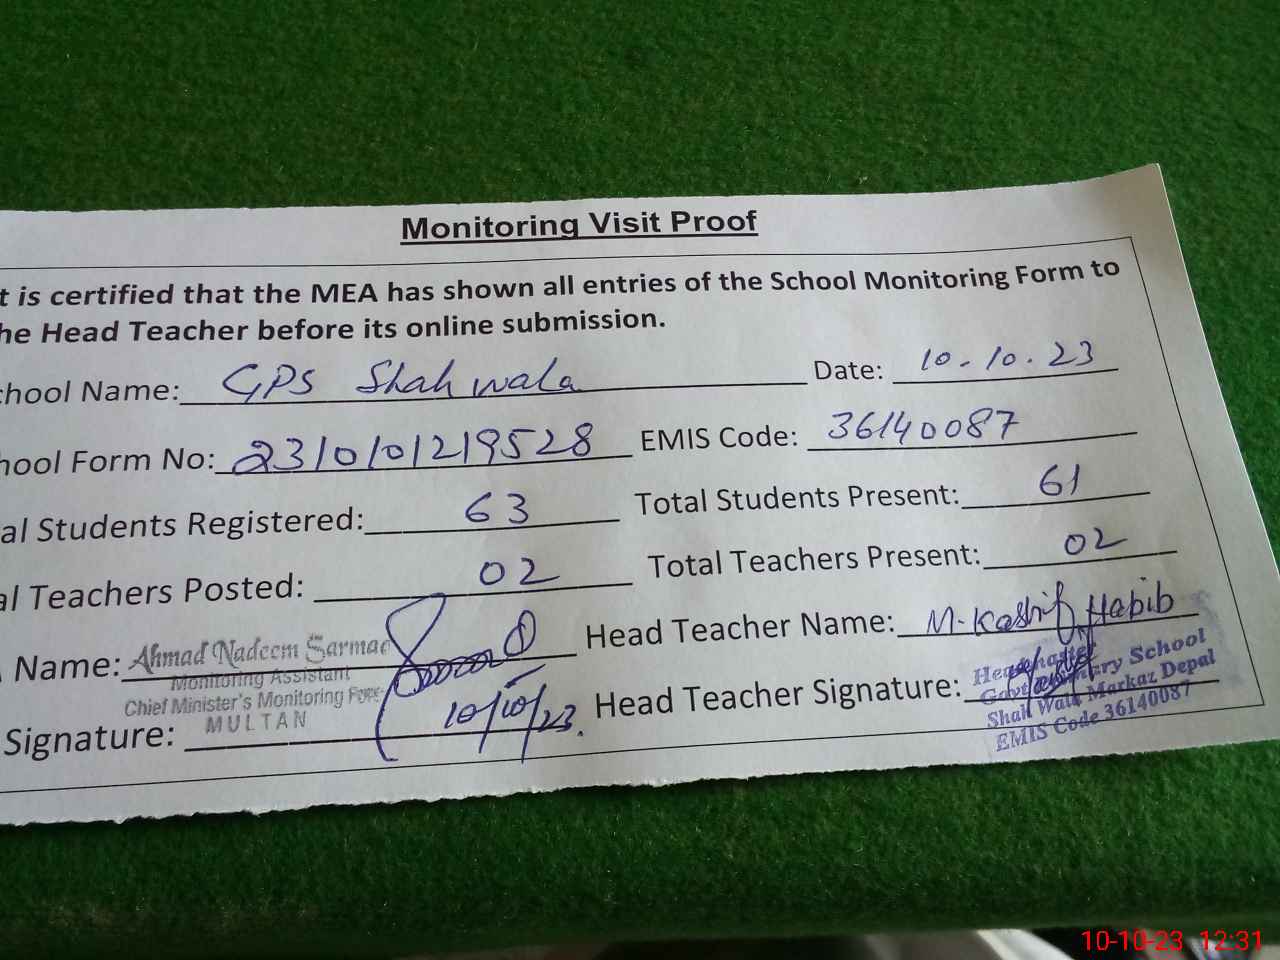 Monitoring Visit Proof
t is certified that the MEA has shown all entries of the School Monitoring Form to
he Head Teacher before its online submission.
chool Name: GPS Shah wala Date: 10-10-23
hool Form No: 2310101219528 EMIS Code: 36140087
al Students Registered: 63 Total Students Present: 61
al Teachers Posted: 02 Total Teachers Present: 02
Name: Ahmad Nadeem Sarmad Head Teacher Name: M. Kashif Habib
Monitoring Assistant
Chief Minister's Monitoring Force
MULTAN
Signature: 10/10/23. Head Teacher Signature:
Headmaster
Govt Primary School
Shah Wala Markaz Depal
EMIS Code 36140087
10-10-23 12:31